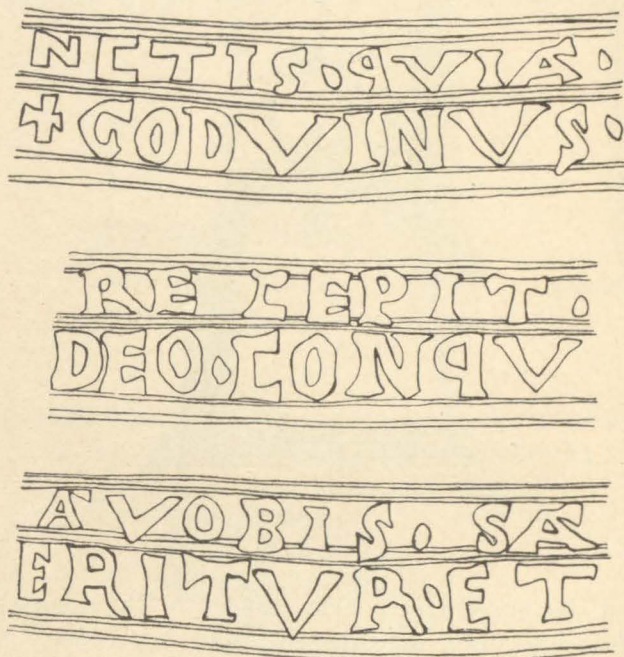 NCTIS · QVIA ·
+ GODVINVS ·
RECEPIT ·
DEO · CONQV
A VOBIS · SA
ERITVR · ET